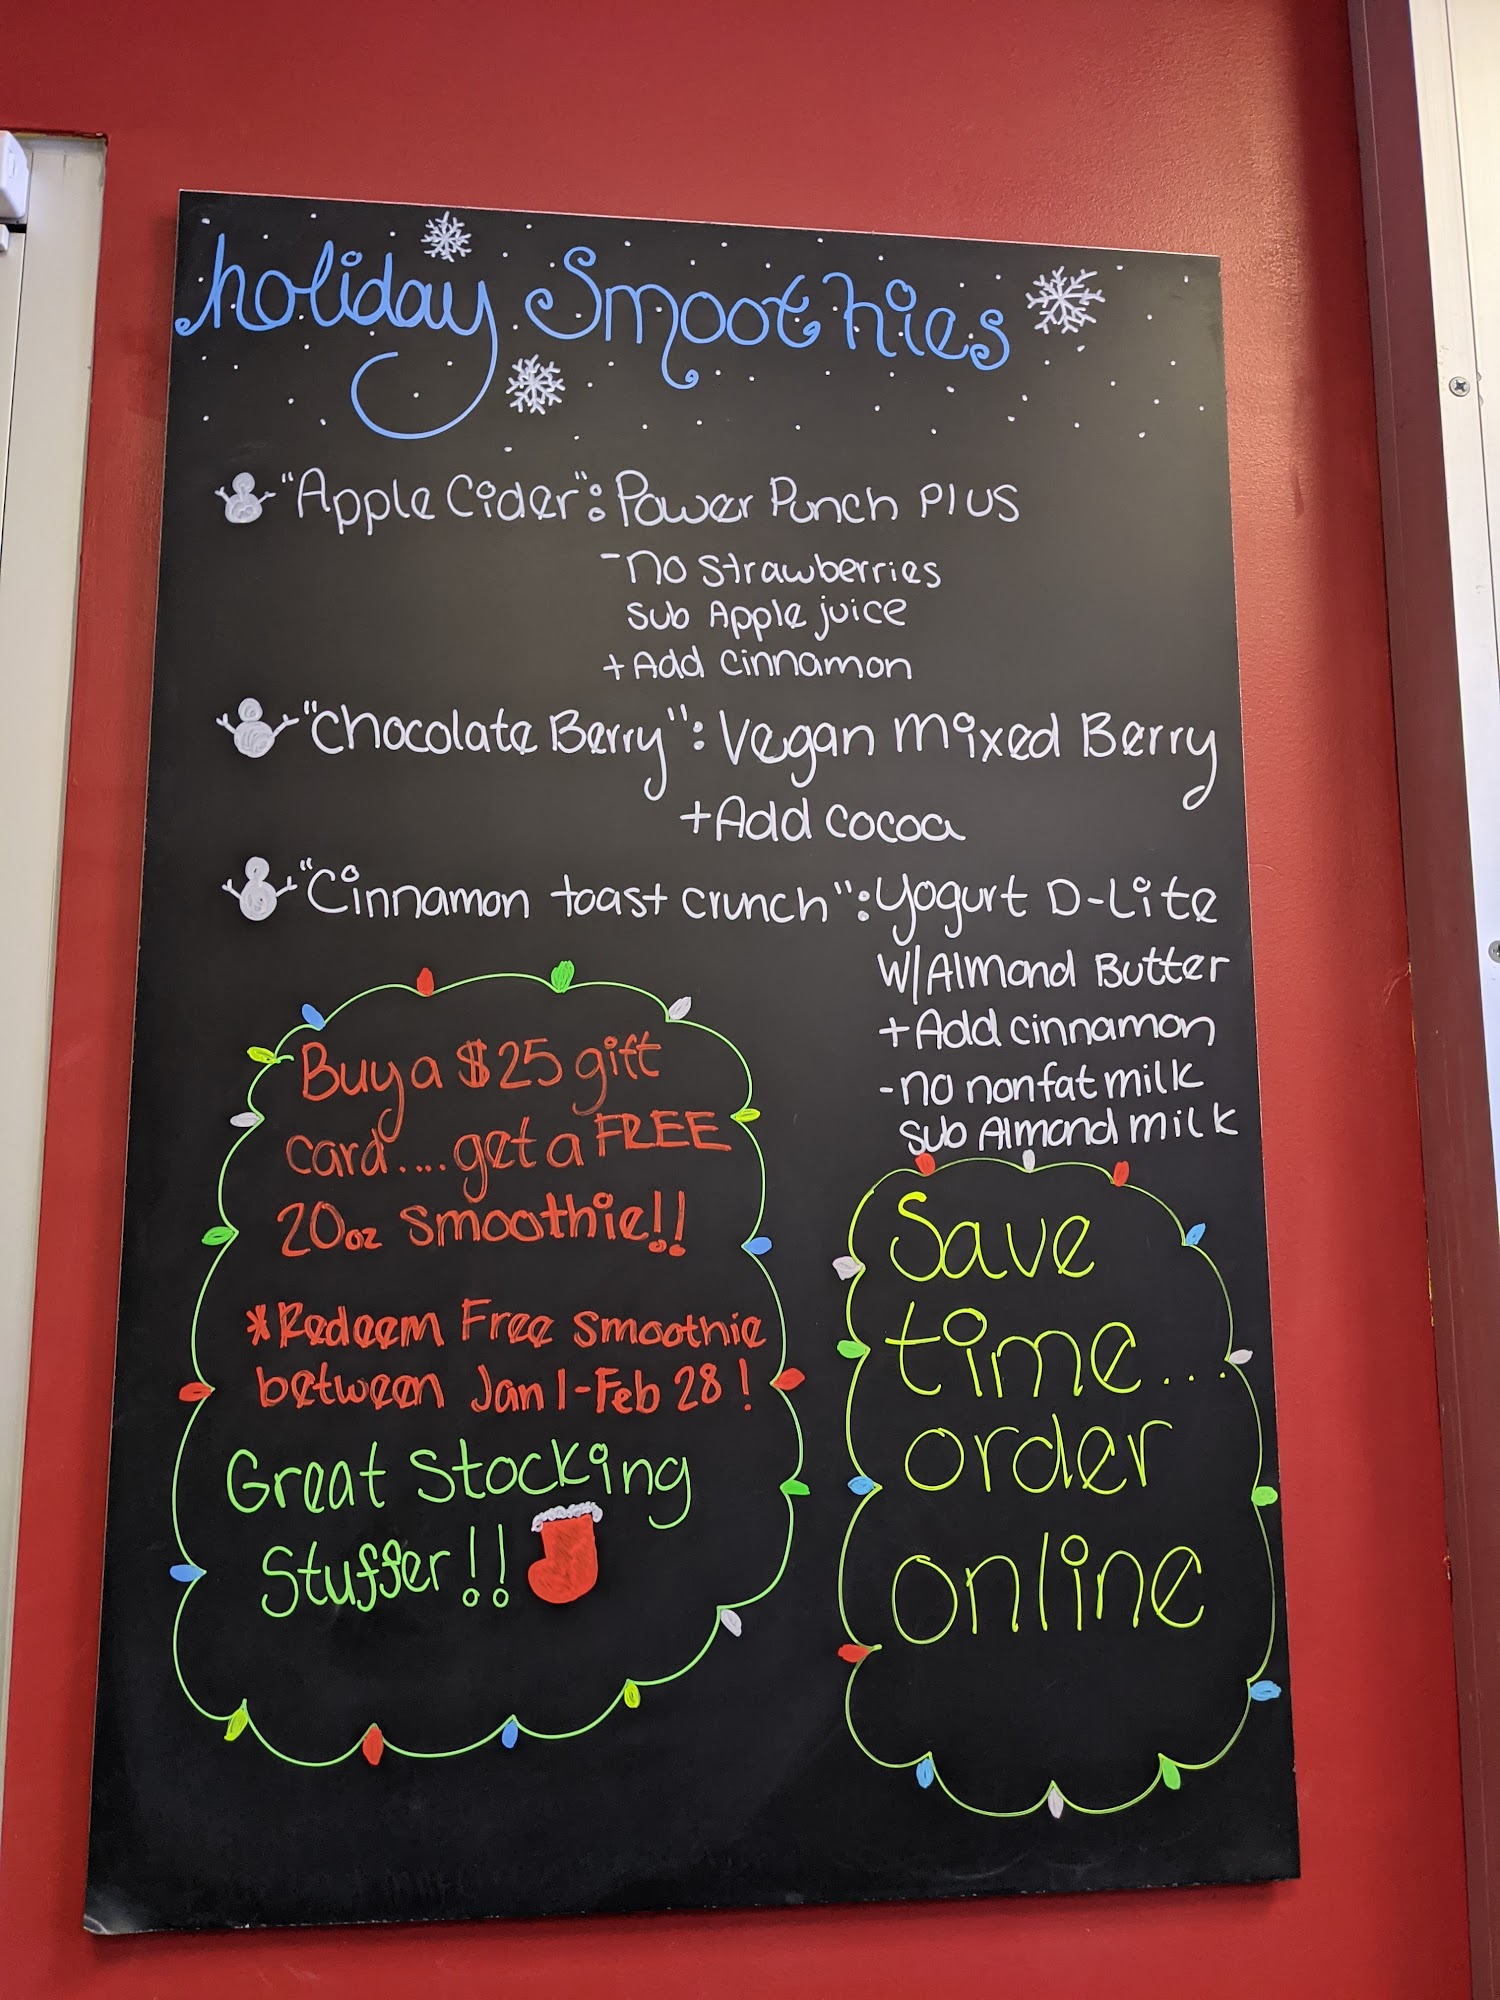 holiday Smoothies
"Apple Cider": Power Punch Plus
-no strawberries
sub Apple juice
+Add cinnamon
"Chocolate Berry": Vegan mixed Berry
+Add cocoa
"Cinnamon toast crunch": Yogurt D-Lite
W/Almond Butter
+Add cinnamon
-no nonfat milk
sub Almond milk
Buy a $25 gift
card....get a FREE
20oz smoothie!!
*Redeem Free smoothie
between Jan 1-Feb 28!
Great Stocking
Stuffer!!
Save
time...
order
online